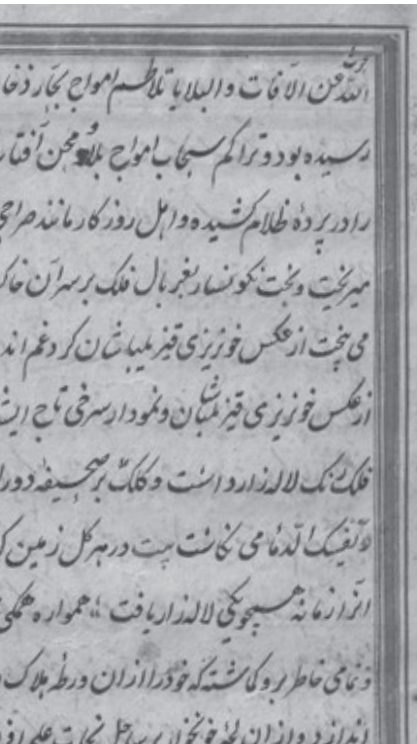 الله عن الآفات والبلایا بتلاطم امواج بحار ذخار
رسیده بود و تراکم سحاب امواج بلا و محن آفتاب
را در پردهٔ ظلام کشیده و اهل روزکار مانند صراحی
میریخت و بخت نکونسار بغربال فلک بر سر آن خاک
می بیخت از عکس خونریزی قزیلباشان کرد غم اند
از عکس خونریزی قزیلباشان و نمودار سرخی تاج ایشان
فلک رنک لاله زار داشت و کلک بر صحیفهٔ دورا
می نکاشت بیت در هر کل زمین که
آنرا زمانه همچو یکی لاله زار یافت همواره همکی
و تمامی خاطر برو کماشته که خود را از آن ورطهٔ هلاک
اندازد و از آن لجهٔ خونخوار بساحل نجات علم